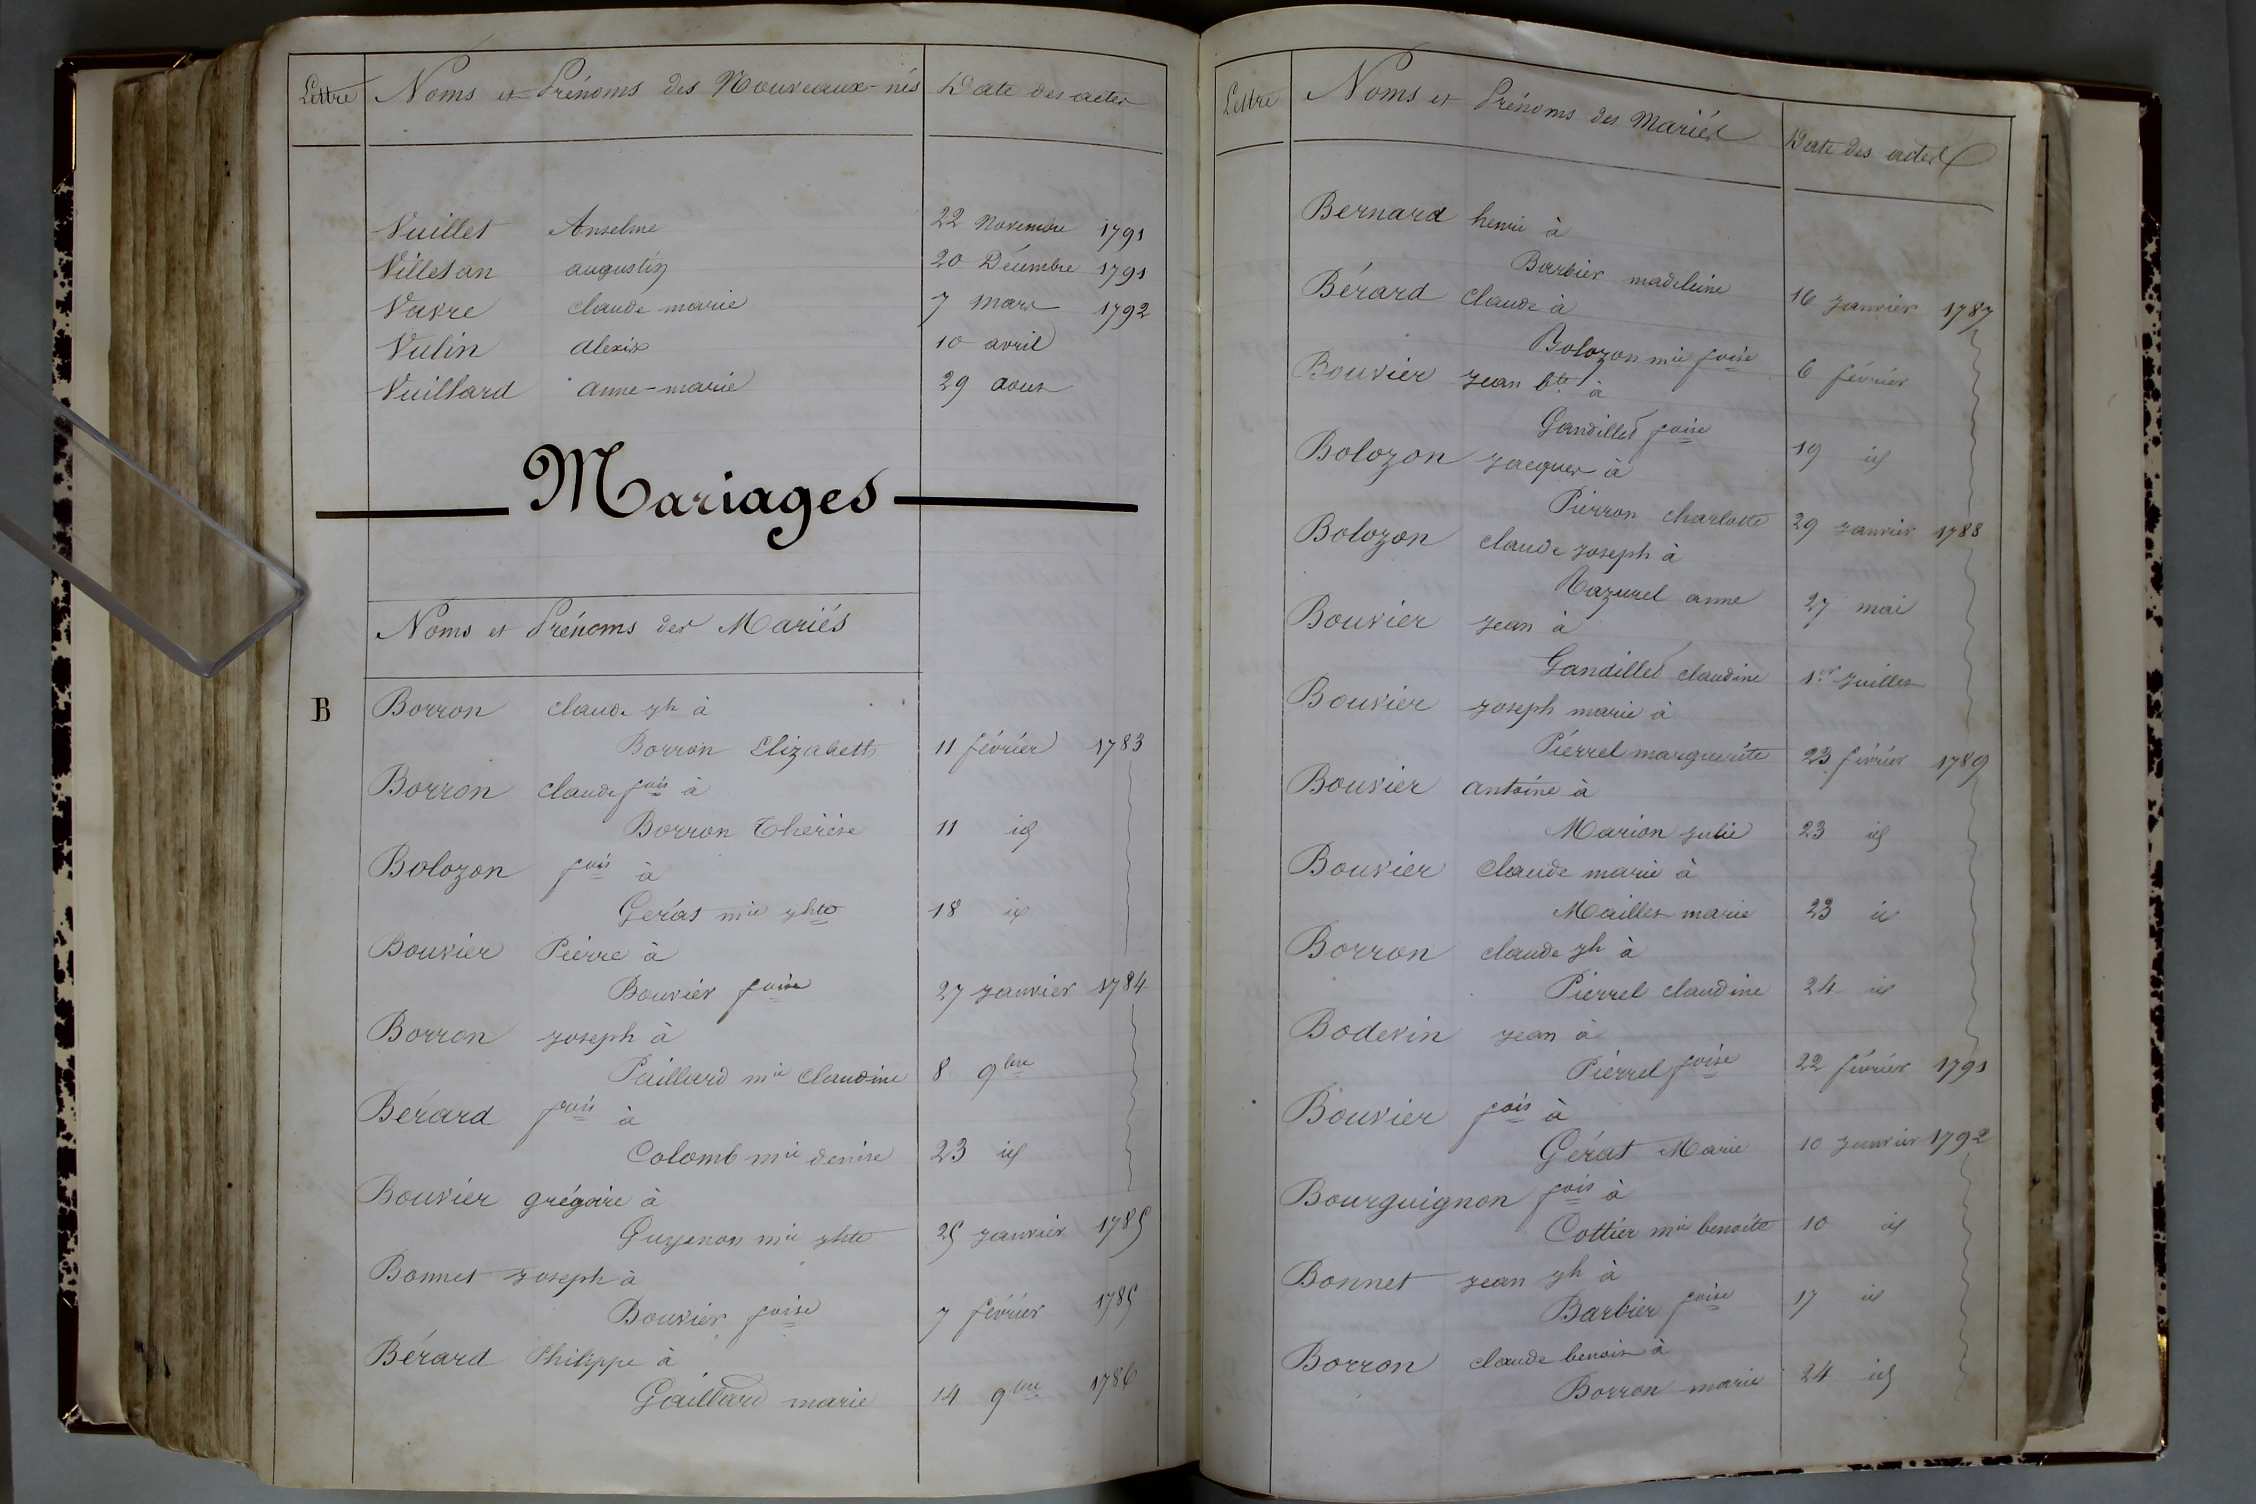 Lettre Noms et Prénoms des Nouveaux-nés Date des actes
Vuillet Anselme 22 Novembre 1791
Villetan augustin 20 Décembre 1791
Vavre claude marie 7 mars 1792
Vulin alexis 10 avril
Vuillard anne-marie 29 aout
Mariages
Noms et Prénoms des Mariés
B Borron claude jh à
Borron Elizabeth 11 février 1783
Borron claude fois à
Borron Thérèse 11 id
Bolozon fois à
Géras mie jhte 18 id
Bouvier Pierre à
Bouvier foise 27 janvier 1784
Borron joseph à
Paillard mie claudine 8 9bre
Bérard fois à
Colomb mie denise 23 id
Bouvier grégoire à
Guyenon mie jhte 25 janvier 1785
Bonnet joseph à
Bouvier foise 7 février 1785
Bérard Philippe à
Gaillard marie 14 9bre 1786
Lettre Noms et Prénoms des Mariés Date des actes
Bernard henri à
Barbier madeleine 16 janvier 1787
Bérard claude à
Bolozon mie foise 6 février
Bouvier jean bte à
Gandillet foise 19 id
Bolozon jacques à
Pierron charlotte 29 janvier 1788
Bolozon claude joseph à
Nazurel anne 27 mai
Bouvier jean à
Gandillet claudine 1er juillet
Bouvier joseph marie à
Pierrel marguerite 23 février 1789
Bouvier antoine à
Marion julie 23 id
Bouvier claude marie à
Maillet marie 23 id
Borron claude jh à
Pierrel claudine 24 id
Bodevin jean à
Pierrel foise 22 février 1791
Bouvier fois à
Gérat Marie 10 janvier 1792
Bourguignon fois à
Cottier mie benoite 10 id
Bonnet jean jh à
Barbier foise 17 id
Borron claude benoit à
Borron marie 24 id